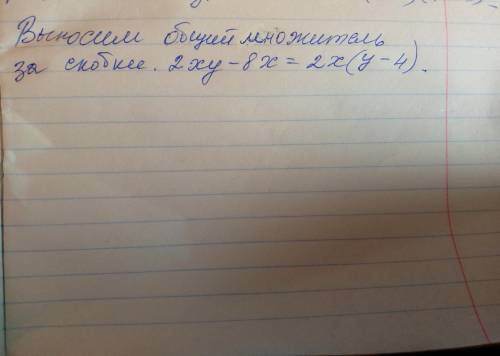 Выносим общий множитель
за скобки. 2xy-8x=2x(y-4).